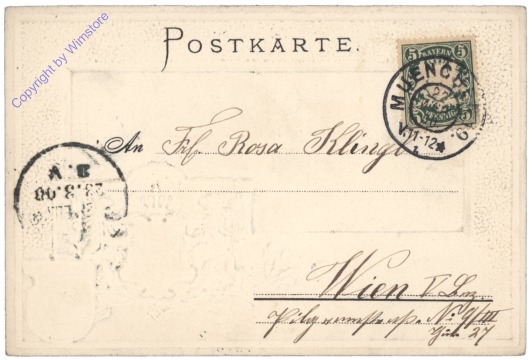 Copyright by Wimstore
POSTKARTE.
5 BAYERN 5
PFENNIG
MUENCH
27
V.11-12
6.
An Frl. Rosa Klingl
23.3.00
Wien V. Bez.
No 9/III
Thür 27